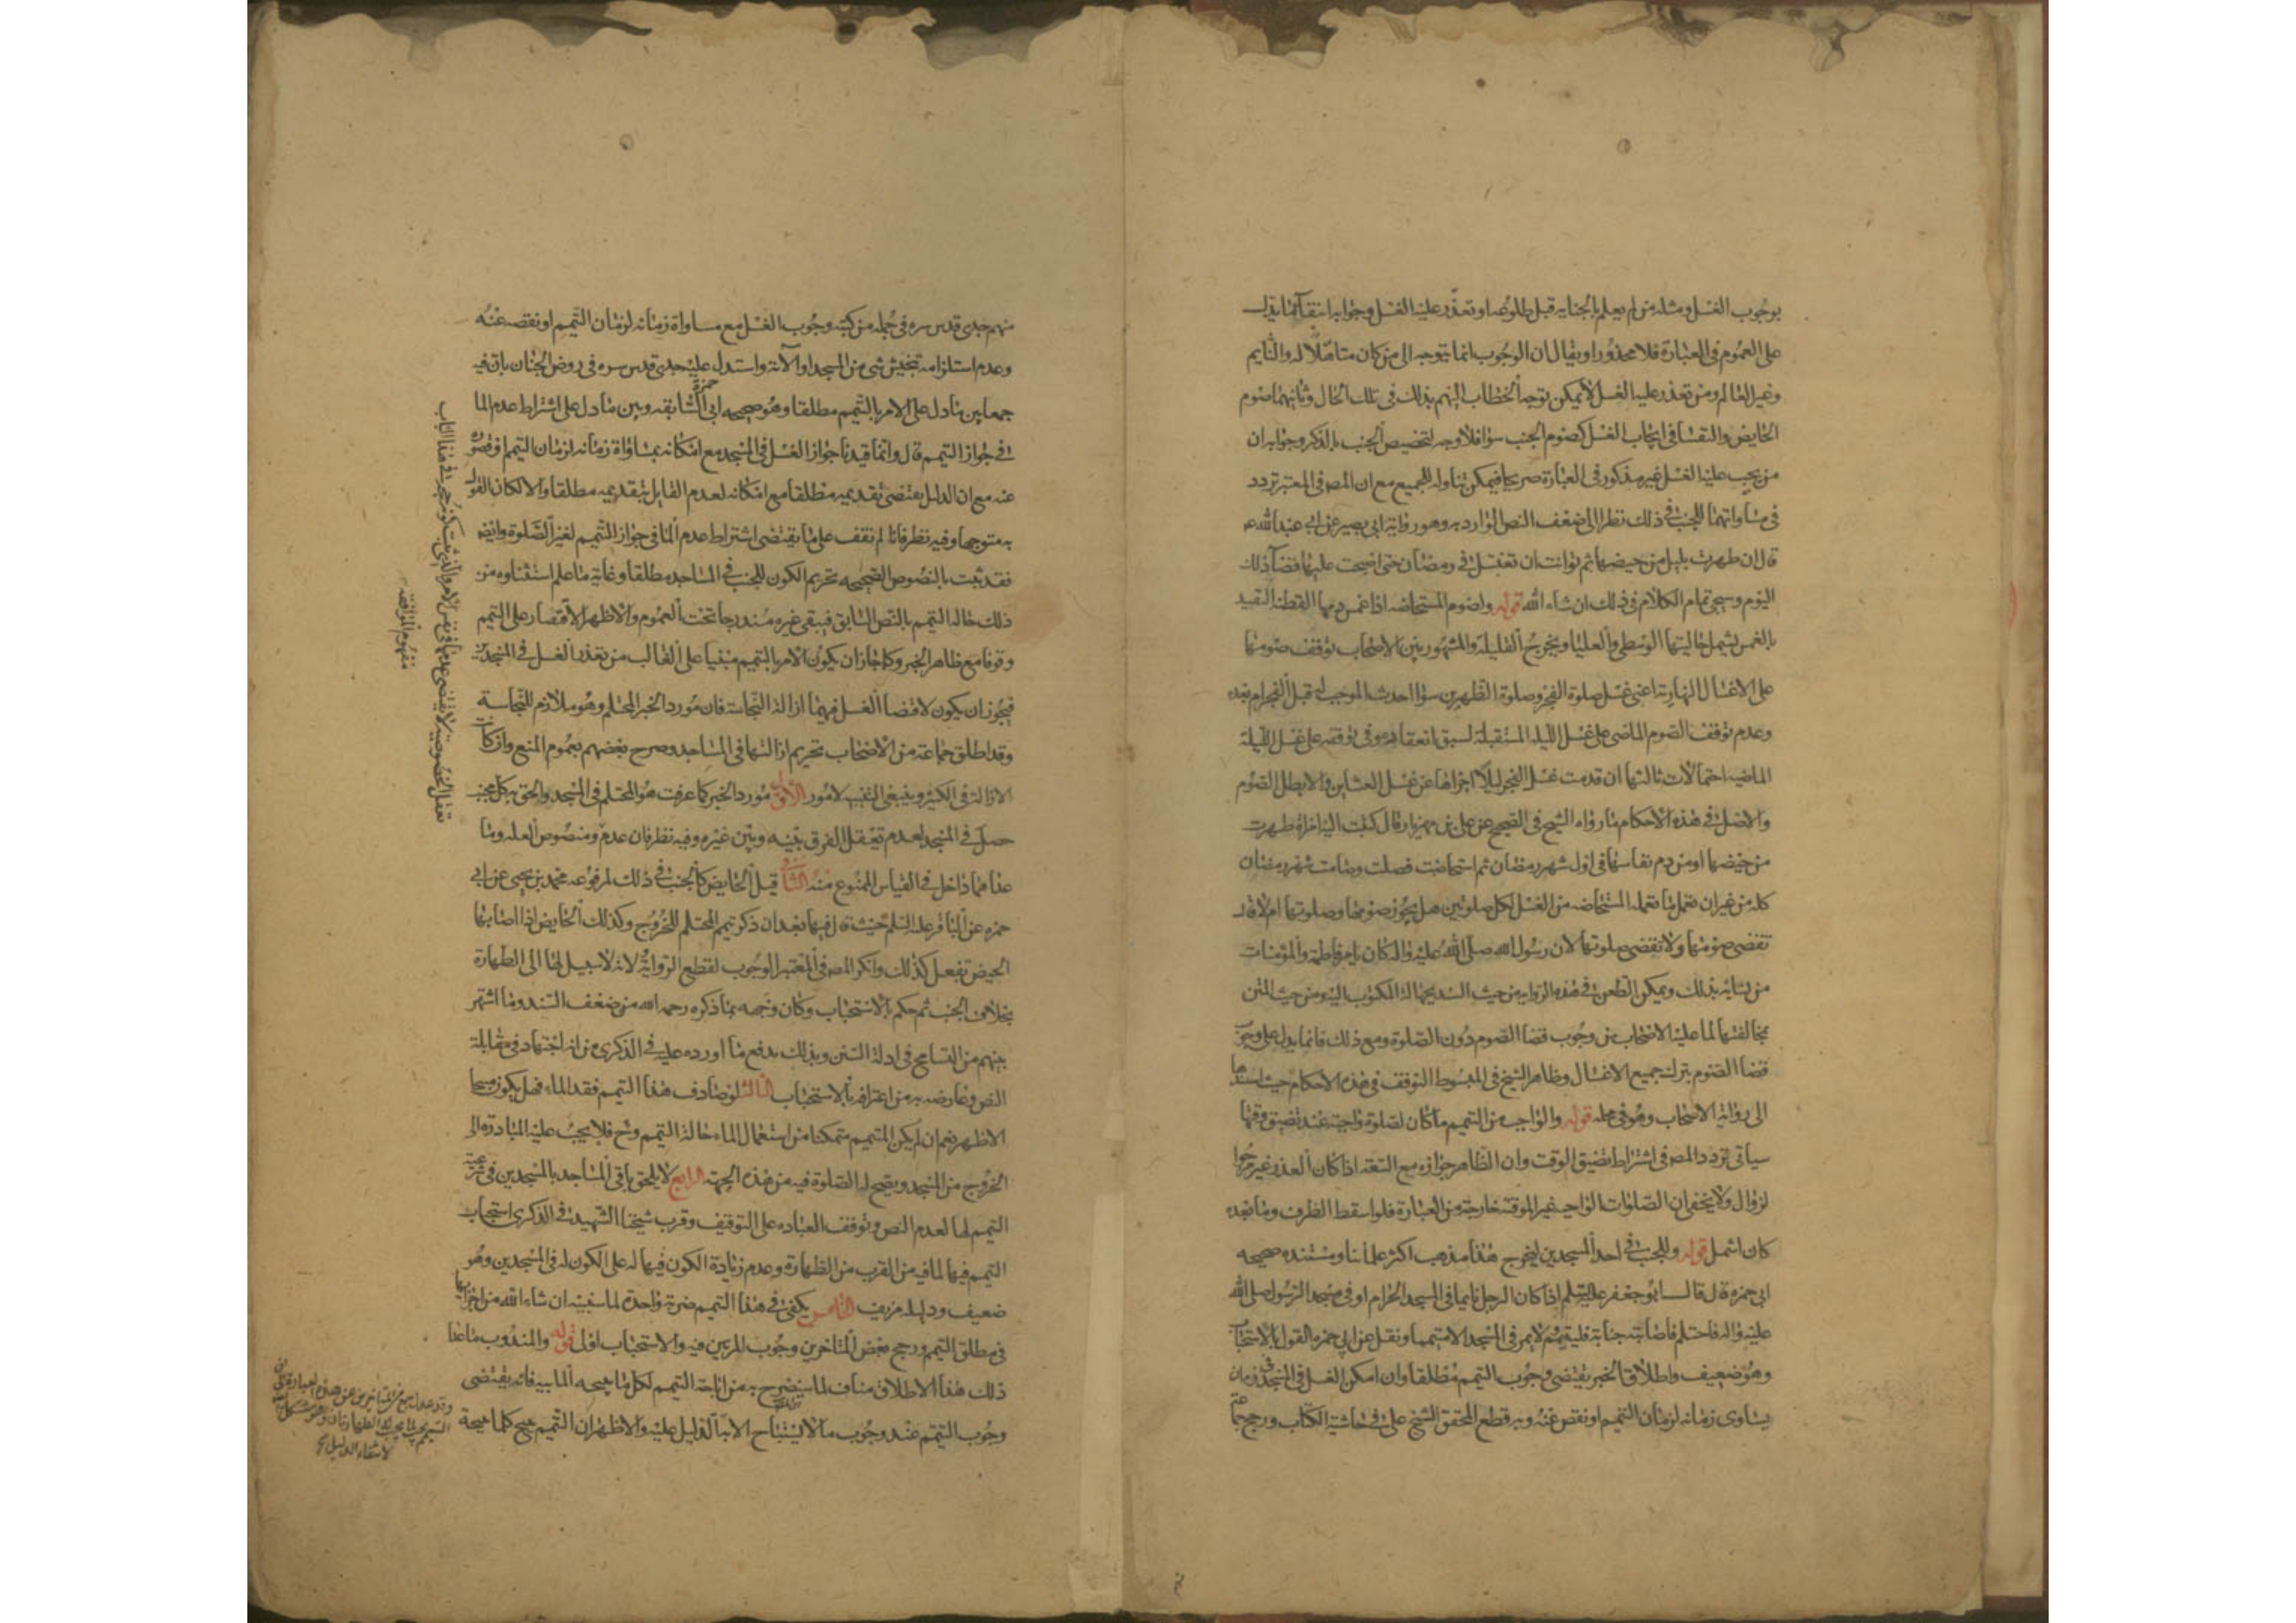 بوجوب الغسل ومثله من لم يعلم بالجنابه قبل طلوعه او تعذر عليه الغسل وجوابه انتفآ ما يدل
على العموم فى العبارة فلا محذور او يقال ان الوجوب انما يتوجه الى من كان متاهلا له والنايم
وغير العالم ومن تعذر عليه الغسل لا يمكن توجه الخطاب اليهم بذلك فى تلك الحال وثانيهما صوم
الحايض والنفسا فى ايجاب الغسل كصوم الجنب سوا فلا وجه لتخصيص الجنب بالذكر وجوابه ان
من يجب عليه الغسل غير مذكور فى العبارة صريحا فيمكن تناوله للجميع مع ان المصه فى المعتبر تردد
فى مساواتهما للجنب فى ذلك نظرا الى ضعف النص الوارد به وهو رواية ابى بصير عن ابى عبد الله ع
قال ان طهرت بليل من حيضها ثم توانت ان تغتسل فى رمضان حتى اصبحت عليها قضآ ذلك
اليوم وسيجى تمام الكلام فى ذلك ان شاء الله قوله ولصوم المستحاضه اذا غمس دمها القطنه التقييد
بالغمس يشمل حالتيها الوسطى والعليا ويخرج القليلة والمشهور بين الاصحاب توقف صومها
على الاغسال النهارية اعنى غسل صلوة الفجر وصلوة الظهرين سوا احدث الموجب له قبل الفجر ام بعده
وعدم توقف الصوم الماضى على غسل الليلة المستقبلة لسبق انعقاده وفى توقفه على غسل الليلة
الماضيه احتمالات ثالثها ان قدمت غسل الفجر ليلا اجزاها عن غسل العشاين والا بطل الصوم
والاصل فى هذه الاحكام ما رواه الشيخ فى الصحيح عن على بن مهزيار قال كتبت اليه امراة طهرت
من حيضها او من دم نفاسها فى اول شهر رمضان ثم استحاضت فصلت وصامت شهر رمضان
كله من غير ان تعمل ما تعمله المستحاضه من الغسل لكل صلوتين هل يجوز صومها وصلوتها ام لا قال
تقضى صومها ولا تقضى صلوتها لان رسول الله صلى الله عليه واله كان يامر فاطمة والمؤمنات
من نسايه بذلك ويمكن الطعن فى هذه الرواية من حيث السند بجهالة المكتوب اليه ومن حيث المتن
بمخالفتها لما عليه الاصحاب من وجوب قضا الصوم دون الصلوة ومع ذلك فانما يدل على وجوب
قضا الصوم بترك جميع الاغسال وظاهر الشيخ فى المبسوط التوقف فى هذه الاحكام حيث اسندها
الى رواية الاصحاب وهو فى محله قوله والواجب من التيمم ما كان لصلوة واجبة عند تضيق وقتها
سياتى تردد المصه فى اشتراط تضيق الوقت وان الظاهر جوازه مع السعه اذا كان العذر غير مرجوا
لزوال ولا يخفى ان الصلوات الواجبه غير الموقته خارجة من العبارة فلو اسقط الظرف وما بعده
كان اشمل قوله وللجنب فى احد المسجدين ليخرج هذا مذهب اكثر علمائنا ومستنده صحيحه
ابى حمزه قال قال ابو جعفر عليه السلم اذا كان الرجل نايما فى المسجد الحرام او فى مسجد الرسول صلى الله
عليه واله فاحتلم فاصابته جنابة فليتيمم ولا يمر فى المسجد الا متيمما ونقل عن ابن حمزه القول بالاستحباب
وهو ضعيف واطلاق الخبر يقتضى وجوب التيمم مطلقا وان امكن الغسل فى المسجد فى زمان
يساوى زمانه لزمان التيمم او نقص عنه وبه قطع المحقق الشيخ على فى حاشية الكتاب ورجح جماعة
منهم جدى قدس سره فى جملة من كتبه وجوب الغسل مع مساواة زمانه لزمان التيمم او نقصه عنه
وعدم استلزامه تنجيش شى من المسجد او الآته واستدل عليه جدى قدس سره فى روض الجنان بان فيه
جمعا بين ما دل على الامر بالتيمم مطلقا وهو صحيحه ابى حمزة السابقه وبين ما دل على اشتراط عدم الما
فى جواز التيمم قال وانما قيدنا جواز الغسل فى المسجد مع امكانه بمساواة زمانه لزمان التيمم او قصوره
عنه مع ان الدليل يقتضى تقديمه مطلقا مع امكانه لعدم القايل بتقديمه مطلقا والا لكان القول
به متوجها وفيه نظر فانا لم نقف على ما يقتضى اشتراط عدم الما فى جواز التيمم لغير الصلوة وايضه
فقد ثبت بالنصوص الصحيحه تحريم الكون للجنب فى المساجد مطلقا وغاية ما علم استثناوه من
ذلك حالة التيمم بالنص السابق فيبقى غيره مندرجا تحت العموم والاظهر الاقتصار على التيمم
وقوفا مع ظاهر الخبر وكما جاز ان يكون الامر بالتيمم مبنيا على الغالب من تعذر الغسل فى المسجدين
فيجوز ان يكون لاقتضا الغسل فيهما ازالة النجاسة فان مورد الخبر المحتلم وهو ملازم للنجاسة
وقد اطلق جماعة من الاصحاب تحريم ازالتها فى المساجد وصرح بعضهم بعموم المنع وان كانت
الازالة فى الكثير وينبغى التنبيه لامور الاول مورد الخبر كما عرفت هو المحتلم فى المسجد والحق به كل مجنب
حصل فى المسجد لعدم تعقل الفرق بينه وبين غيره وفيه نظر فان عدم ومنصوص العله وما
عداهما داخل فى القياس الممنوع منه الثانى قيل الحايض كالجنب فى ذلك لمرفوعه محمد بن يحيى عن ابى
حمزه عن الباقر عليه السلم حيث قال فيها بعد ان ذكر تيمم المحتلم للخروج وكذلك الحايض اذا اصابها
الحيض تفعل كذلك وانكر المصه فى المعتبر الوجوب لقطع الرواية ولانه لا سبيل لها الى الطهارة
بخلاف الجنب ثم حكم بالاستحباب وكان وجهه ما ذكره رحمه الله من ضعف السند وما اشتهر
بينهم من التسامح فى ادلة السنن وبذلك يدفع ما اورده عليه فى الذكرى من انه اجتهاد فى مقابلة
النص وعارضه به من اعترافه بالاستحباب الثالث لو صادف هذا التيمم فقد الماء فهل يكون مبيحا
الاظهر نعم ان لم يكن المتيمم متمكنا من استعمال الماء حالة التيمم وح فلا يجب عليه المبادرة الى
الخروج من المسجد ويصح له الصلوة فيه من هذه الجهة الرابع لا يلحق باقى المساجد بالمسجدين فى شرعية
التيمم لها لعدم النص وتوقف العباده على التوقيف وقرب شيخنا الشهيد فى الذكرى استحباب
التيمم فيها لما فيه من القرب من الطهارة وعدم زيادة الكون فيها له على الكون له فى المسجدين وهو
ضعيف ودليله مزيف الخامس يكفى فى هذا التيمم ضربة واحدة لما سنبينه ان شاء الله من اجزايها
فى مطلق التيمم ورجح بعض المتاخرين وجوب المرتين فيه والاستحباب اولى قوله والمندوب ما عدا
ذلك هذا الاطلاق مناف لما سيصرح به من اباحة التيمم لكل ما يبيحه المابيه فانه يقتضى
وجوب التيمم عند وجوب ما لا يستباح الا به الدليل عليه والاظهر ان التيمم يبيح كلما يبيحه
مفهوم الموافقة
لانتفاء الدليل